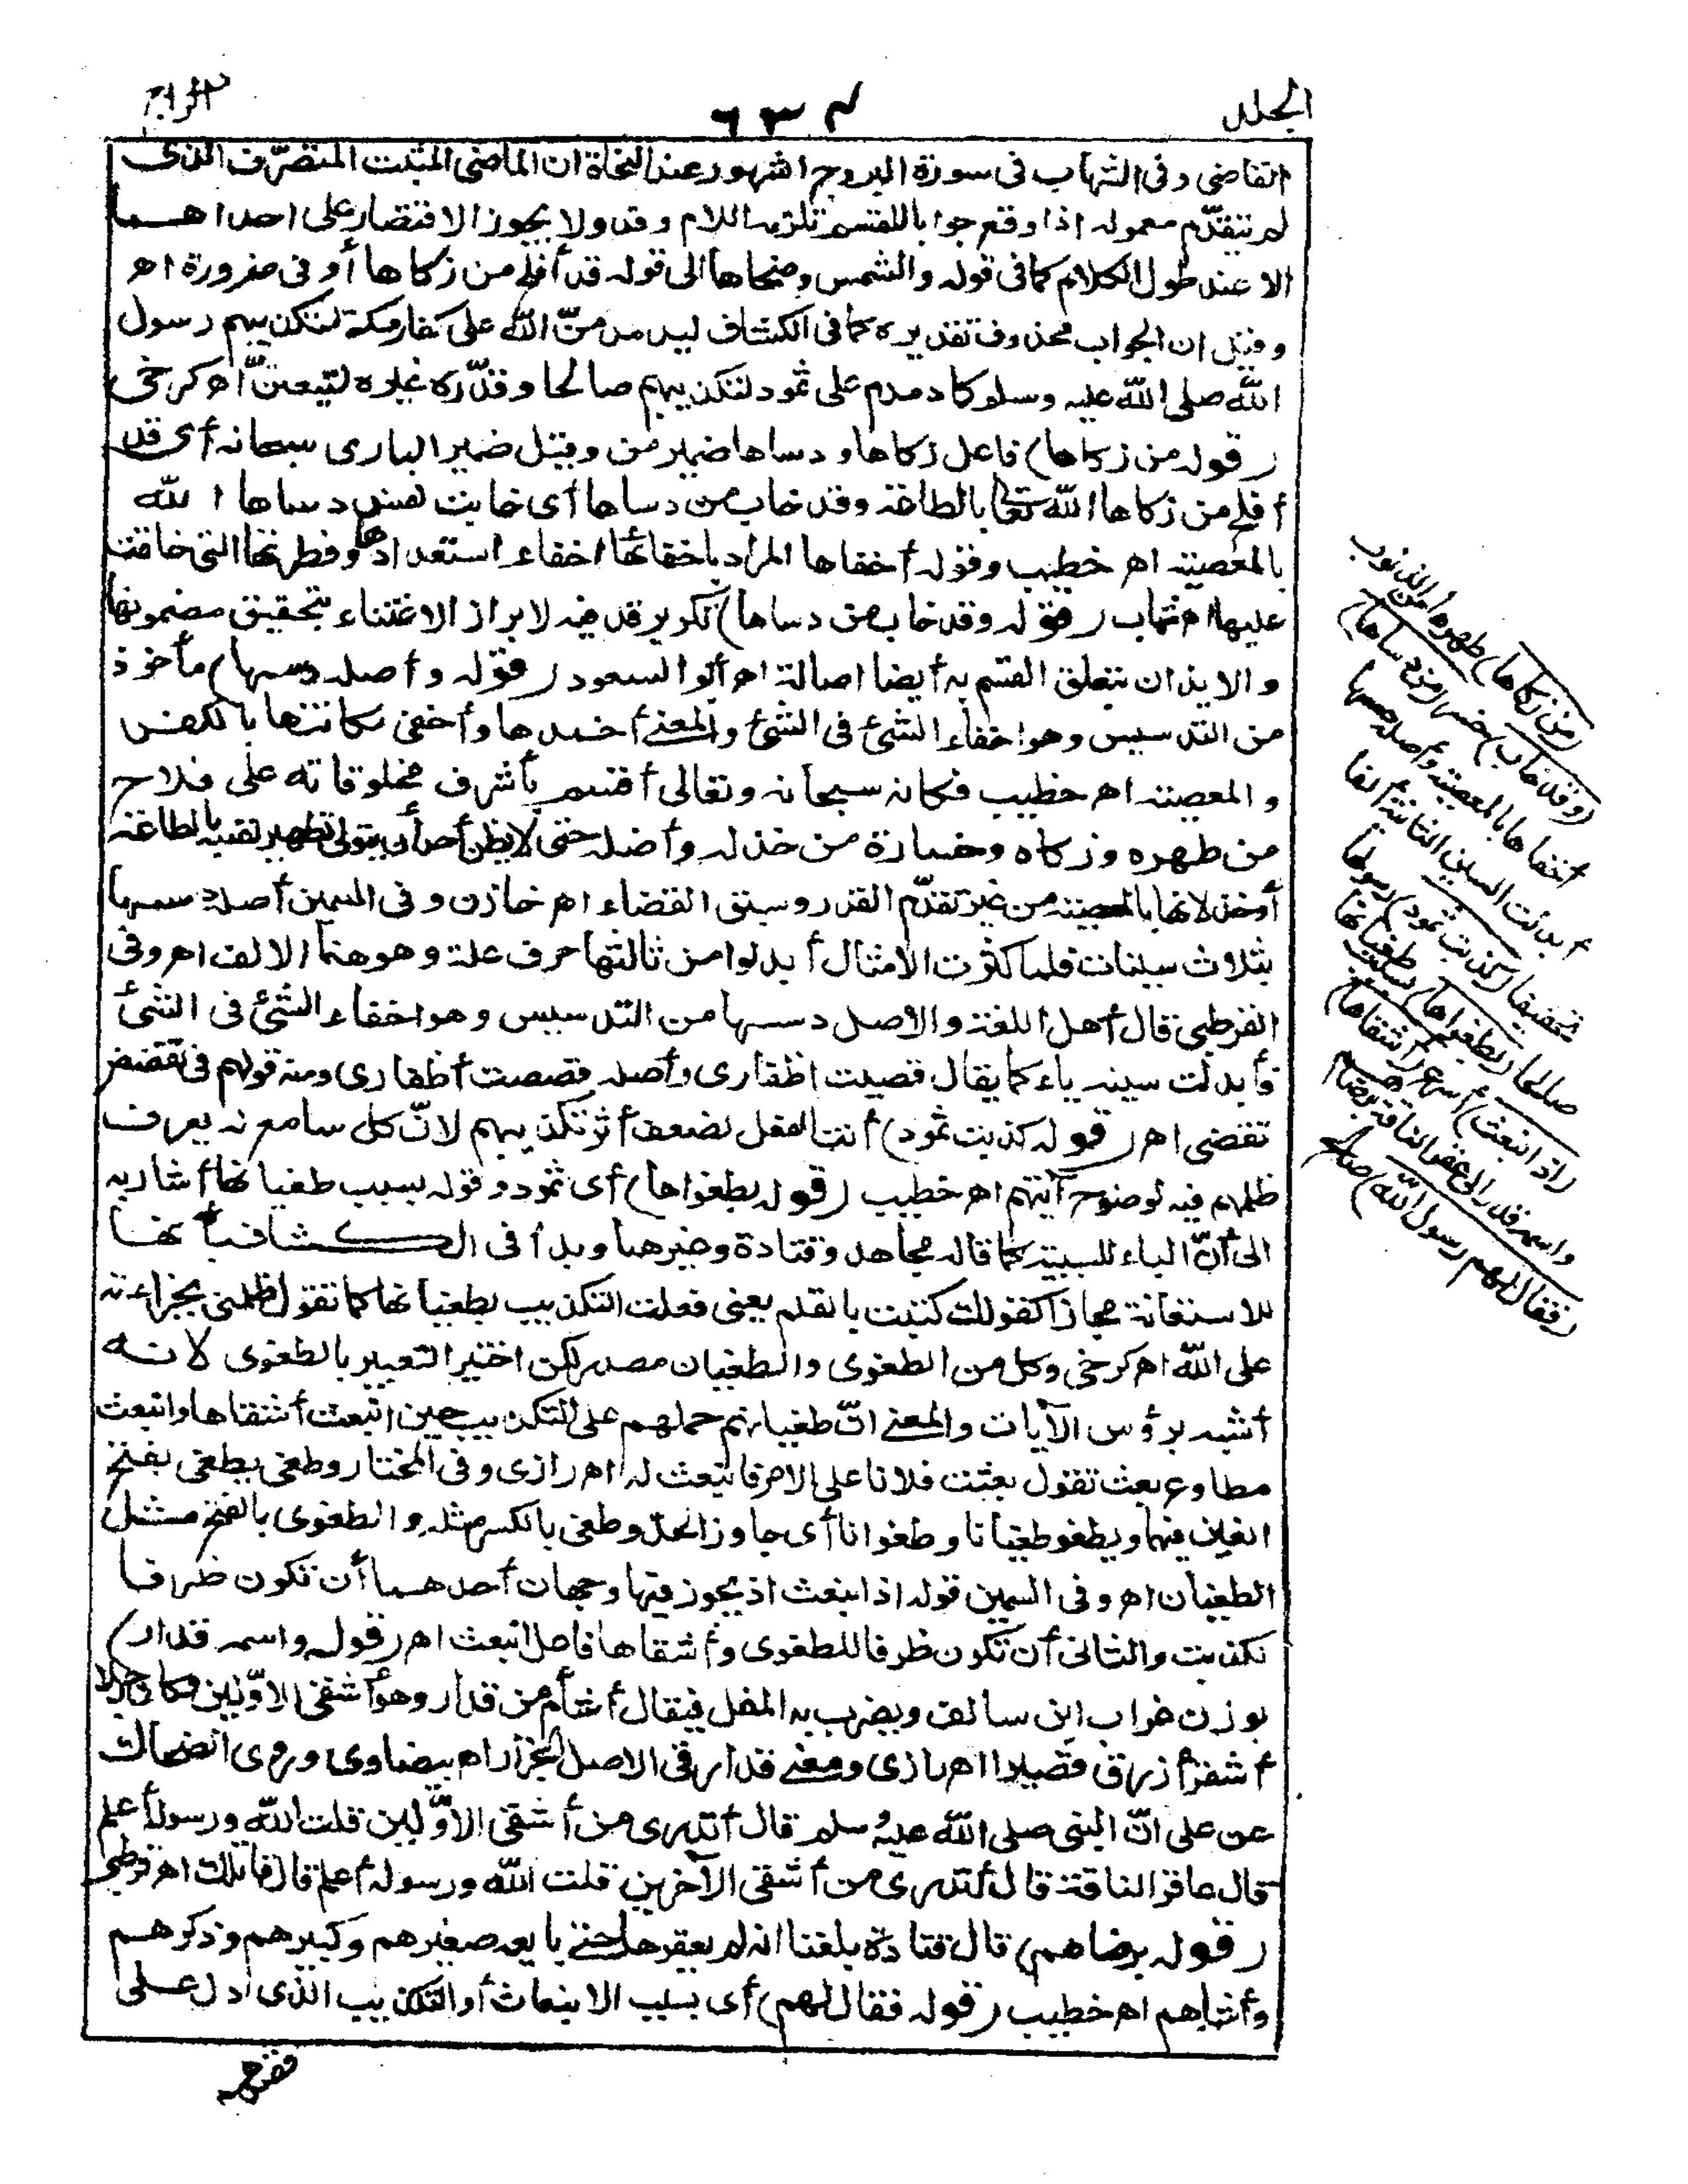 الجلد
٦٣٢
الرابع
القاضى وفى الشهاب فى سورة البروج المشهور عند النحاة ان الماضى المثبت المتصرّف الذى
لم يتقدّم معموله اذا وقع جوابا للقسم تلزمه اللام وقد ولا يجوز الاقتصار على احداهما
الا عند طول الكلام كما فى قوله والشمس وضحاها الى قوله قد أفلح من زكاها أو فى ضرورة اهـ
وقيل ان الجواب محذوف تقديره كما فى الكشاف ليدمدمنّ الله على كفار مكة لتكذيبهم رسول
الله صلى الله عليه وسلم كما دمدم على ثمود لتكذيبهم صالحا وقدّره غيره لتبعثنّ اهـ كرخى
(قوله من زكاها) فاعل زكاها ودساها ضمير من وقيل ضمير البارى سبحانه أى قد
أفلح من زكاها الله تعالى بالطاعة وقد خاب من دساها أى خابت نفس دساها الله
بالمعصية اهـ خطيب وقوله أخفاها المراد باخفائها اخفاء استعدادها وفطرتها التى خلقت
عليها اهـ شهاب (قوله وقد خاب من دساها) تكرير قد فيه لابراز الاعتناء بتحقيق مضمونها
والايذان بتعلق القسم به أيضا اصالة اهـ أبو السعود (قوله وأصله دسسها) مأخوذ
من التدسيس وهو اخفاء الشئ فى الشئ والمعنى أخمدها وأخفى مكانتها بالكفر
والمعصية اهـ خطيب فكانه سبحانه وتعالى أقسم بأشرف مخلوقاته على فلاح
من طهره وزكاه وخسارة من خذله وأضله حتى لا يظن أحد أنه يتولى تطهير نفسه بالطاعة
أو خذلانها بالمعصية من غير تقدّم القدر وسبق القضاء اهـ خازن وفى السمين أصله دسسها
بثلاث سينات فلما كثرت الامثال أبدلوا من ثالثها حرف علة وهو هنا الالف اهـ وفى
القرطبى قال أهل اللغة والاصل دسسها من التدسيس وهو اخفاء الشئ فى الشئ
فأبدلت سينه ياء كما يقال قصيت اظفارى وأصله قصصت أظفارى ومنه قولهم فى تقضض
تقضى اهـ (قوله كذبت ثمود) أنث الفعل لضعف أثر تكذيبهم لانّ كل سامع له يعرف
ظلمهم فيه لوضوح آيتهم اهـ خطيب (قوله بطغواها) أى ثمود وقوله بسبب طغيانها أشار به
الى أنّ الباء للسببية كما قاله مجاهد وقتادة وغيرهما وبدأ فى الكشاف بأنها
للاستعانة مجازا كقولك كتبت بالقلم يعنى فعلت التكذيب بطغيانها كما تقول ظلمنى بجراءته
على الله اهـ كرخى وكل من الطغوى والطغيان مصدر لكن اختير التعبير بالطغوى لانه
أشبه برؤس الآيات والمعنى انّ طغيانهم حملهم على التكذيب حين انبعث أشقاها وانبعث
مطاوع بعث تقول بعثت فلانا على الامر فانبعث له اهـ رازى وفى المختار وطغى يطغى بفتح
الغين فيهما ويطغو طغيانا وطغوانا أى جاوز الحدّ وطغى بالكسر مثله والطغوى بالفتح مثل
الطغيان اهـ وفى السمين قوله اذ انبعث اذ يجوز فيها وجهان أحدهما أن تكون ظرفا
لكذبت والثانى أن تكون ظرفا للطغوى وأشقاها فاعل انبعث اهـ (قوله واسمه قدار)
بوزن غراب ابن سالف ويضرب به المثل فيقال أشأم من قدار وهو أشقى الاوّلين وكان رجلا
أشقر أزرق قصيرا اهـ رازى ومعنى قدار فى الاصل الجزار اهـ بيضاوى وروى الضحاك
عن على انّ النبى صلى الله عليه وسلم قال أتدرى من أشقى الاوّلين قلت الله ورسوله أعلم
قال عاقر الناقة قال أتدرى من أشقى الآخرين قلت الله ورسوله أعلم قال قاتلك اهـ قرطبى
(قوله برضاهم) قال قتادة بلغنا انه لم يعقرها حتى بايعه صغيرهم وكبيرهم وذكرهم
وأنثاهم اهـ خطيب (قوله فقال لهم) أى بسبب الانبعاث أو التكذيب الذى دل على
(من زكاها) طهرها من الذنوب
(وقد خاب) خسر (من دساها)
أخفاها بالمعصية وأصله دسسها
أبدلت السين الثانية ألفا
تخفيفا (كذبت ثمود) رسولها
صالحا (بطغواها) بسبب طغيانها
(اذ انبعث) أسرع (أشقاها)
واسمه قدار الى عقر الناقة برضاهم
(فقال لهم رسول الله) صالح